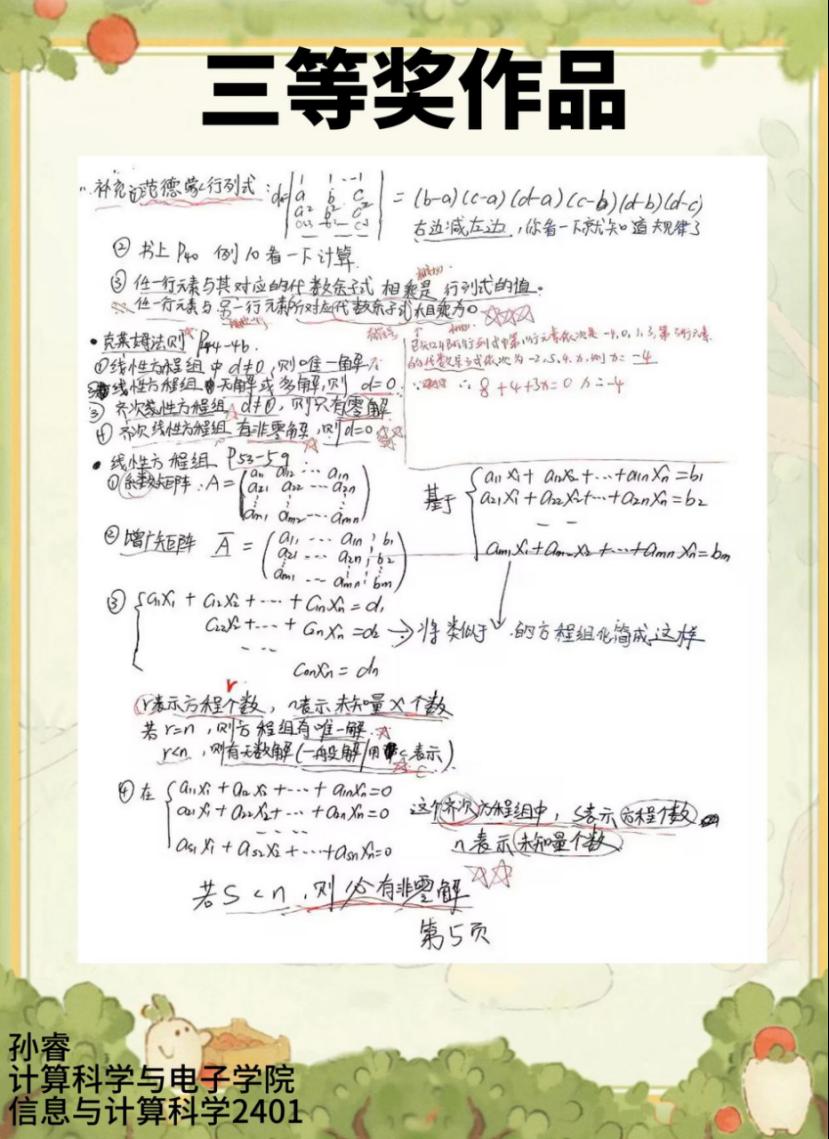 三等奖作品
补充①范德蒙行列式: d=
1 1 ... 1
a b c
a² b² c²
= (b-a)(c-a)(d-a)(c-b)(d-b)(d-c)
右边减左边,你看一下就知道大规律了
② 书上P40 例10看一下计算
③ 任一行元素与其对应的代数余子式 相乘是 行列式的值。
任一行元素与另一行元素所对应代数余子式相乘为0
• 克莱姆法则 P44-46
①线性方程组中 d≠0, 则唯一解
线性方程组 无解或多解,则 d=0
③ 齐次线性方程组 d≠0, 则只有零解
④ 齐次线性方程组 有非零解,则d=0
的代数余子式依次为 -2,5,4,x,则x= -4
∴ 8+4+3x=0 x=-4
• 线性方程组 P53-59
① 系数矩阵: A =
a11 a12 ... a1n
a21 a22 ... a2n
am1 am2 ... amn
基于
a11x1+a12x2+...+a1nxn=b1
a21x1+a22x2+...+a2nxn=b2
am1x1+am2x2+...+amnxn=bm
② 增广矩阵 Ā =
a11 ... a1n b1
a21 ... a2n b2
am1 ... amn bm
③ c11x1+c12x2+...+c1nxn=d1
c22x2+...+c2nxn=d2 → 将类似于 的方程组化简成这样
cnnxn=dn
r
r表示方程个数, n表示未知量x个数
若r=n, 则方程组有唯一解
r<n, 则有无数解(一般解用c表示)
④ 在 a11x1+a12x2+...+a1nxn=0
a21x1+a22x2+...+a2nxn=0
as1x1+as2x2+...+asnxn=0
这个齐次方程组中, s表示方程个数
n表示未知量个数
若S<n, 则必有非零解
第5页
孙睿
计算科学与电子学院
信息与计算科学2401